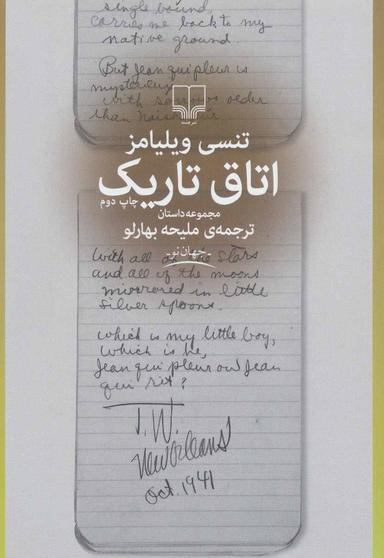 single bound,
carries me back to my
native ground.
But Jean qui pleur is
mysterious
with sorrows older
than
نشرچشمه
تنسی ویلیامز
اتاق تاریک
چاپ دوم
مجموعه داستان
ترجمه‌ی ملیحه بهارلو
جهان نو
with all of the stars
and all of the moons
mirrored in little
silver spoons.
which is my little boy,
which is he,
Jean qui pleur ou Jean
qui rit?
T.W.
New Orleans
Oct. 1941